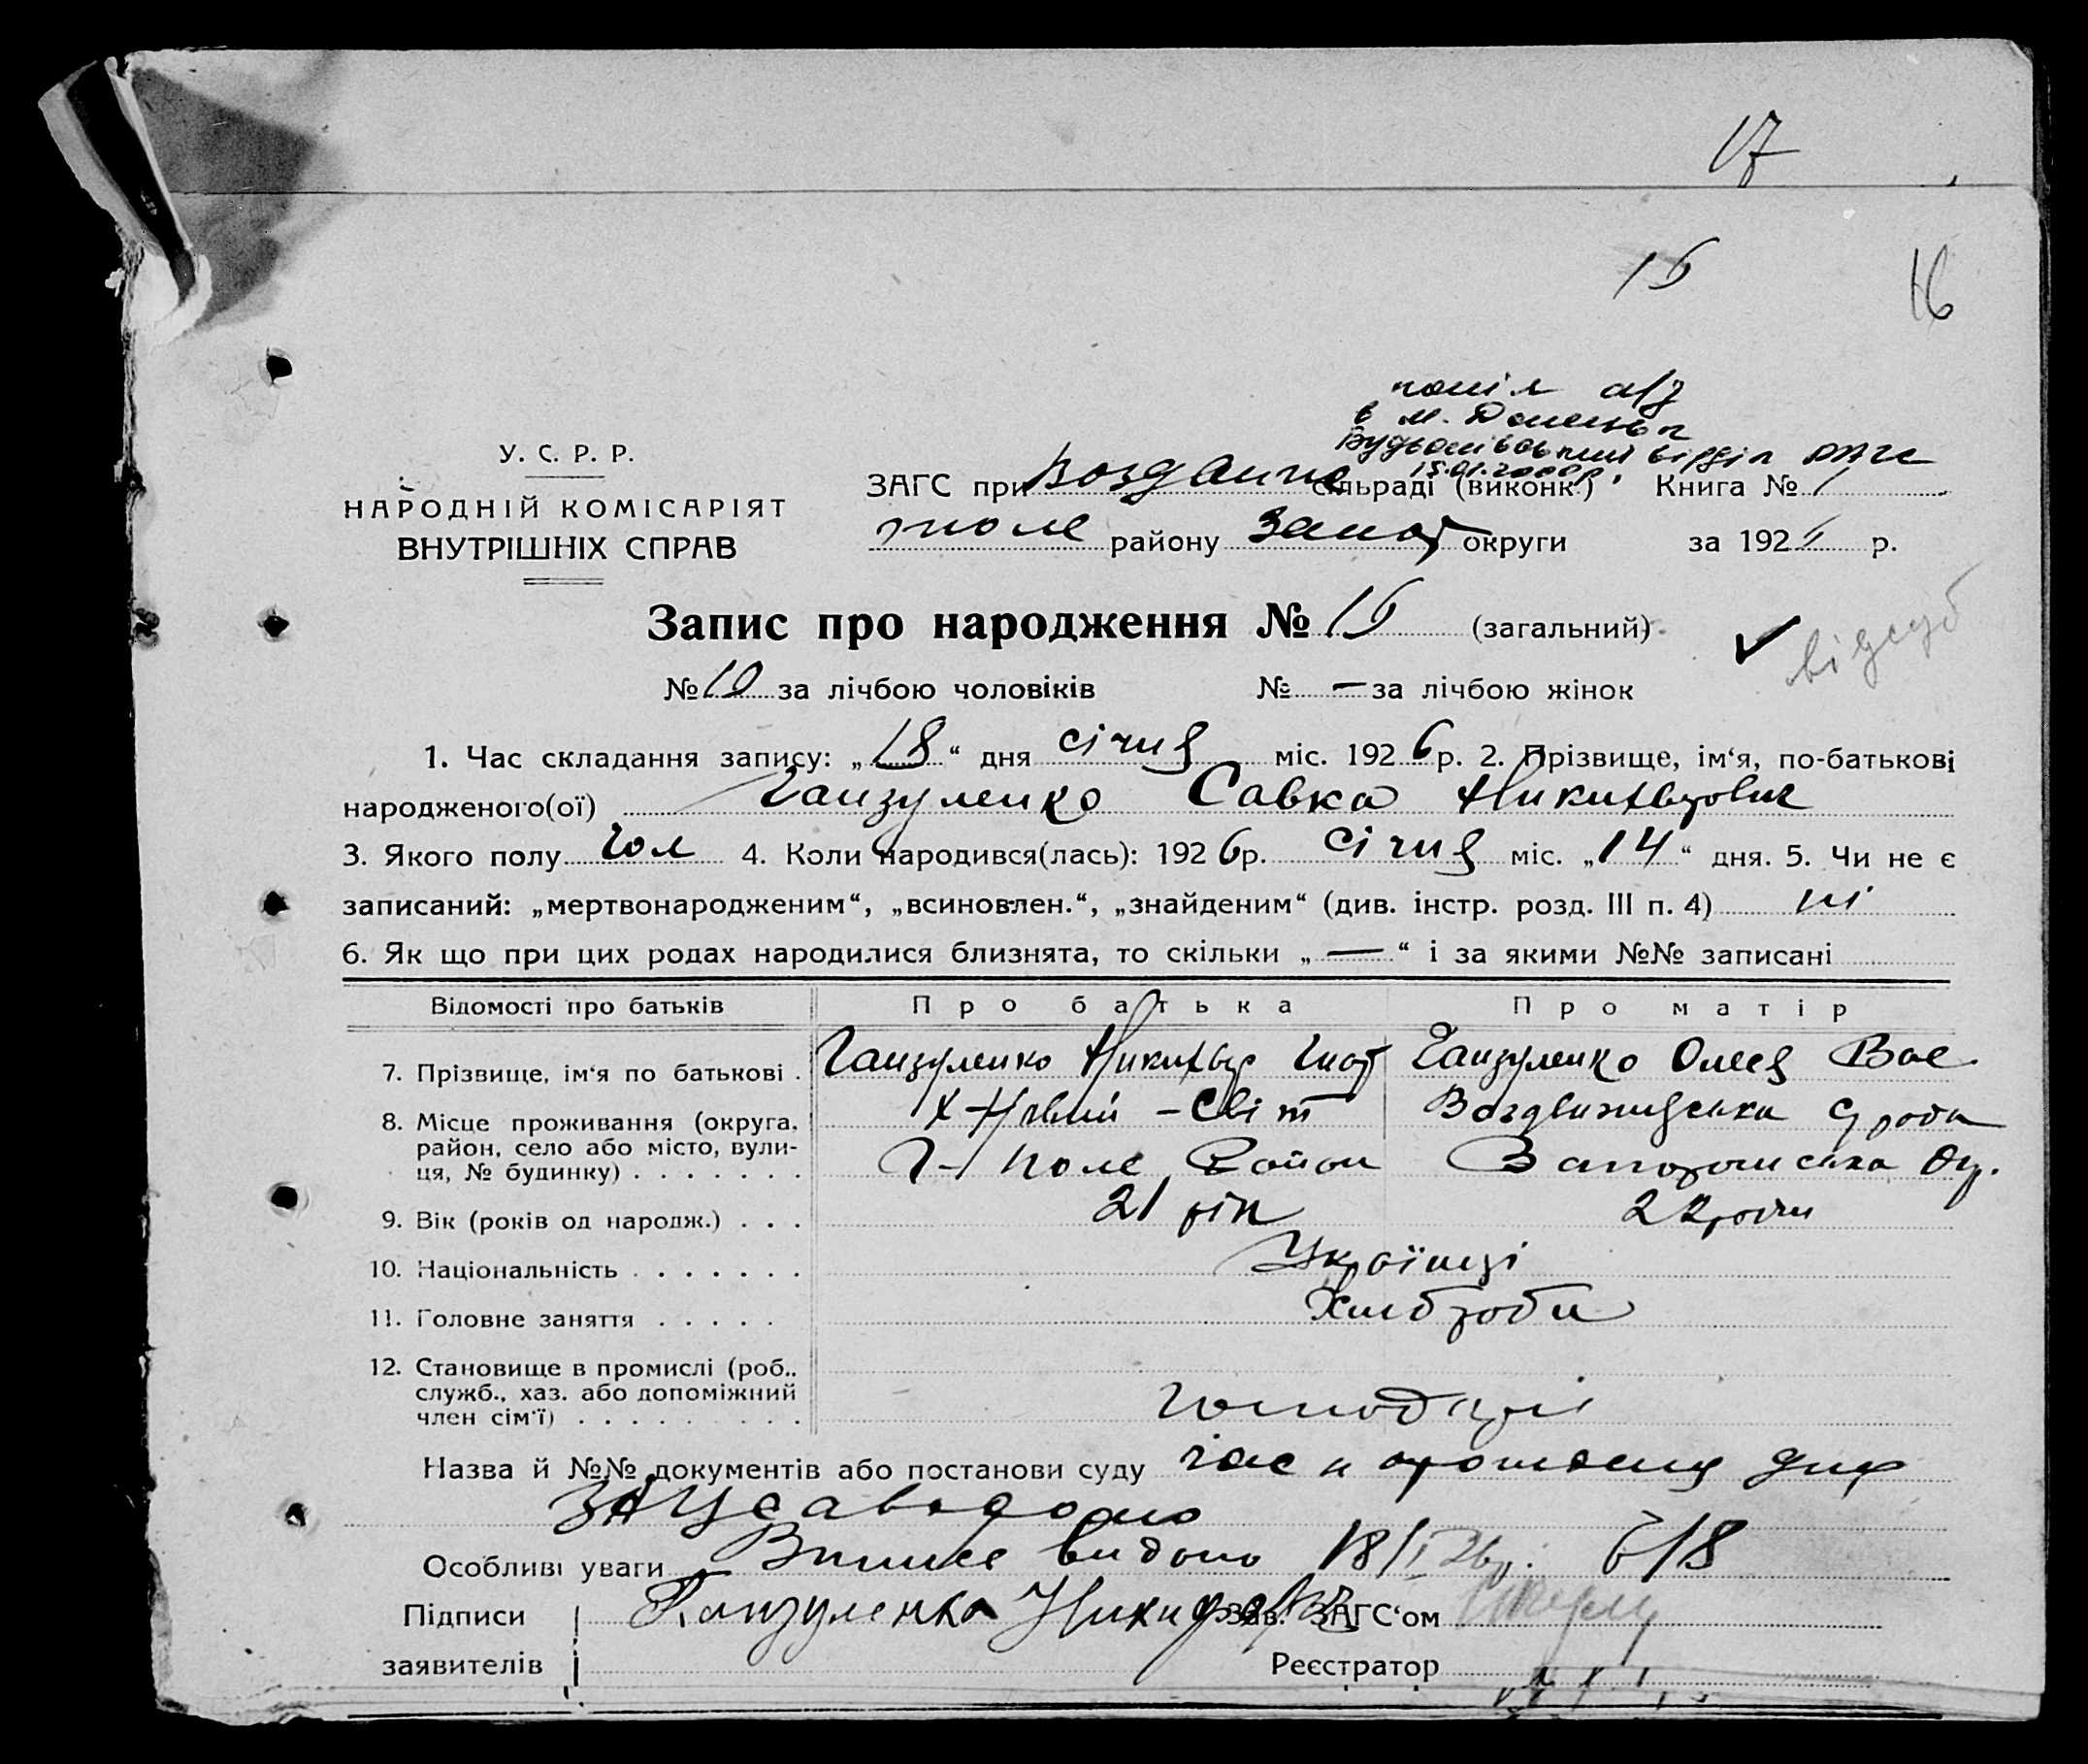 17
16
16
копія а/з
в м. Донецьк
Будьонівський відділ РАГС
15.01.2000р.
У. С. Р. Р.
НАРОДНІЙ КОМІСАРІЯТ
ВНУТРІШНІХ СПРАВ
ЗАГС при сільраді (виконк.) Книга № 1
поле району Запор округи за 1926 р.
Запис про народження № 16 (загальний)
відсуб
№ 10 за лічбою чоловіків № — за лічбою жінок
1. Час складання запису: „18“ дня січня міс. 1926 р. 2. Прізвище, ім‘я, по-батькові
народженого(ої) Ганзуленко Савка Никифорович
3. Якого полу Чол 4. Коли народився(лась): 1926 р. січня міс. „14“ дня. 5. Чи не є
записаний: „мертвонародженим“, „всиновлен.“, „знайденим“ (див. інстр. розд. III п. 4) ні
6. Як що при цих родах народилися близнята, то скільки „—“ і за якими №№ записані
Відомості про батьків Про батька Про матір
7. Прізвище, ім‘я по батькові . Ганзуленко Никифор Гнат Ганзуленко Олеся Вас
8. Місце проживання (округа, район, село або місто, вули-ця, № будинку) . . . . . . . Х-Новий-Світ Воздвижиська
Г-Поле Район Запорожська Ок.
9. Вік (років од народж.) . . . 21 рік 22 роки
10. Національність . . . . . . . Українці
11. Головне заняття . . . . . Хлібороби
12. Становище в промислі (роб.. служб., хаз. або допоміжний член сім‘ї) . . . . . . . . . господарі
Назва й №№ документів або постанови суду
Особливі уваги Виписс видано 18/I 26р. 618
Підписи Ганзуленка Никифор Зав. ЗАГС‘ом
заявителів Реєстратор